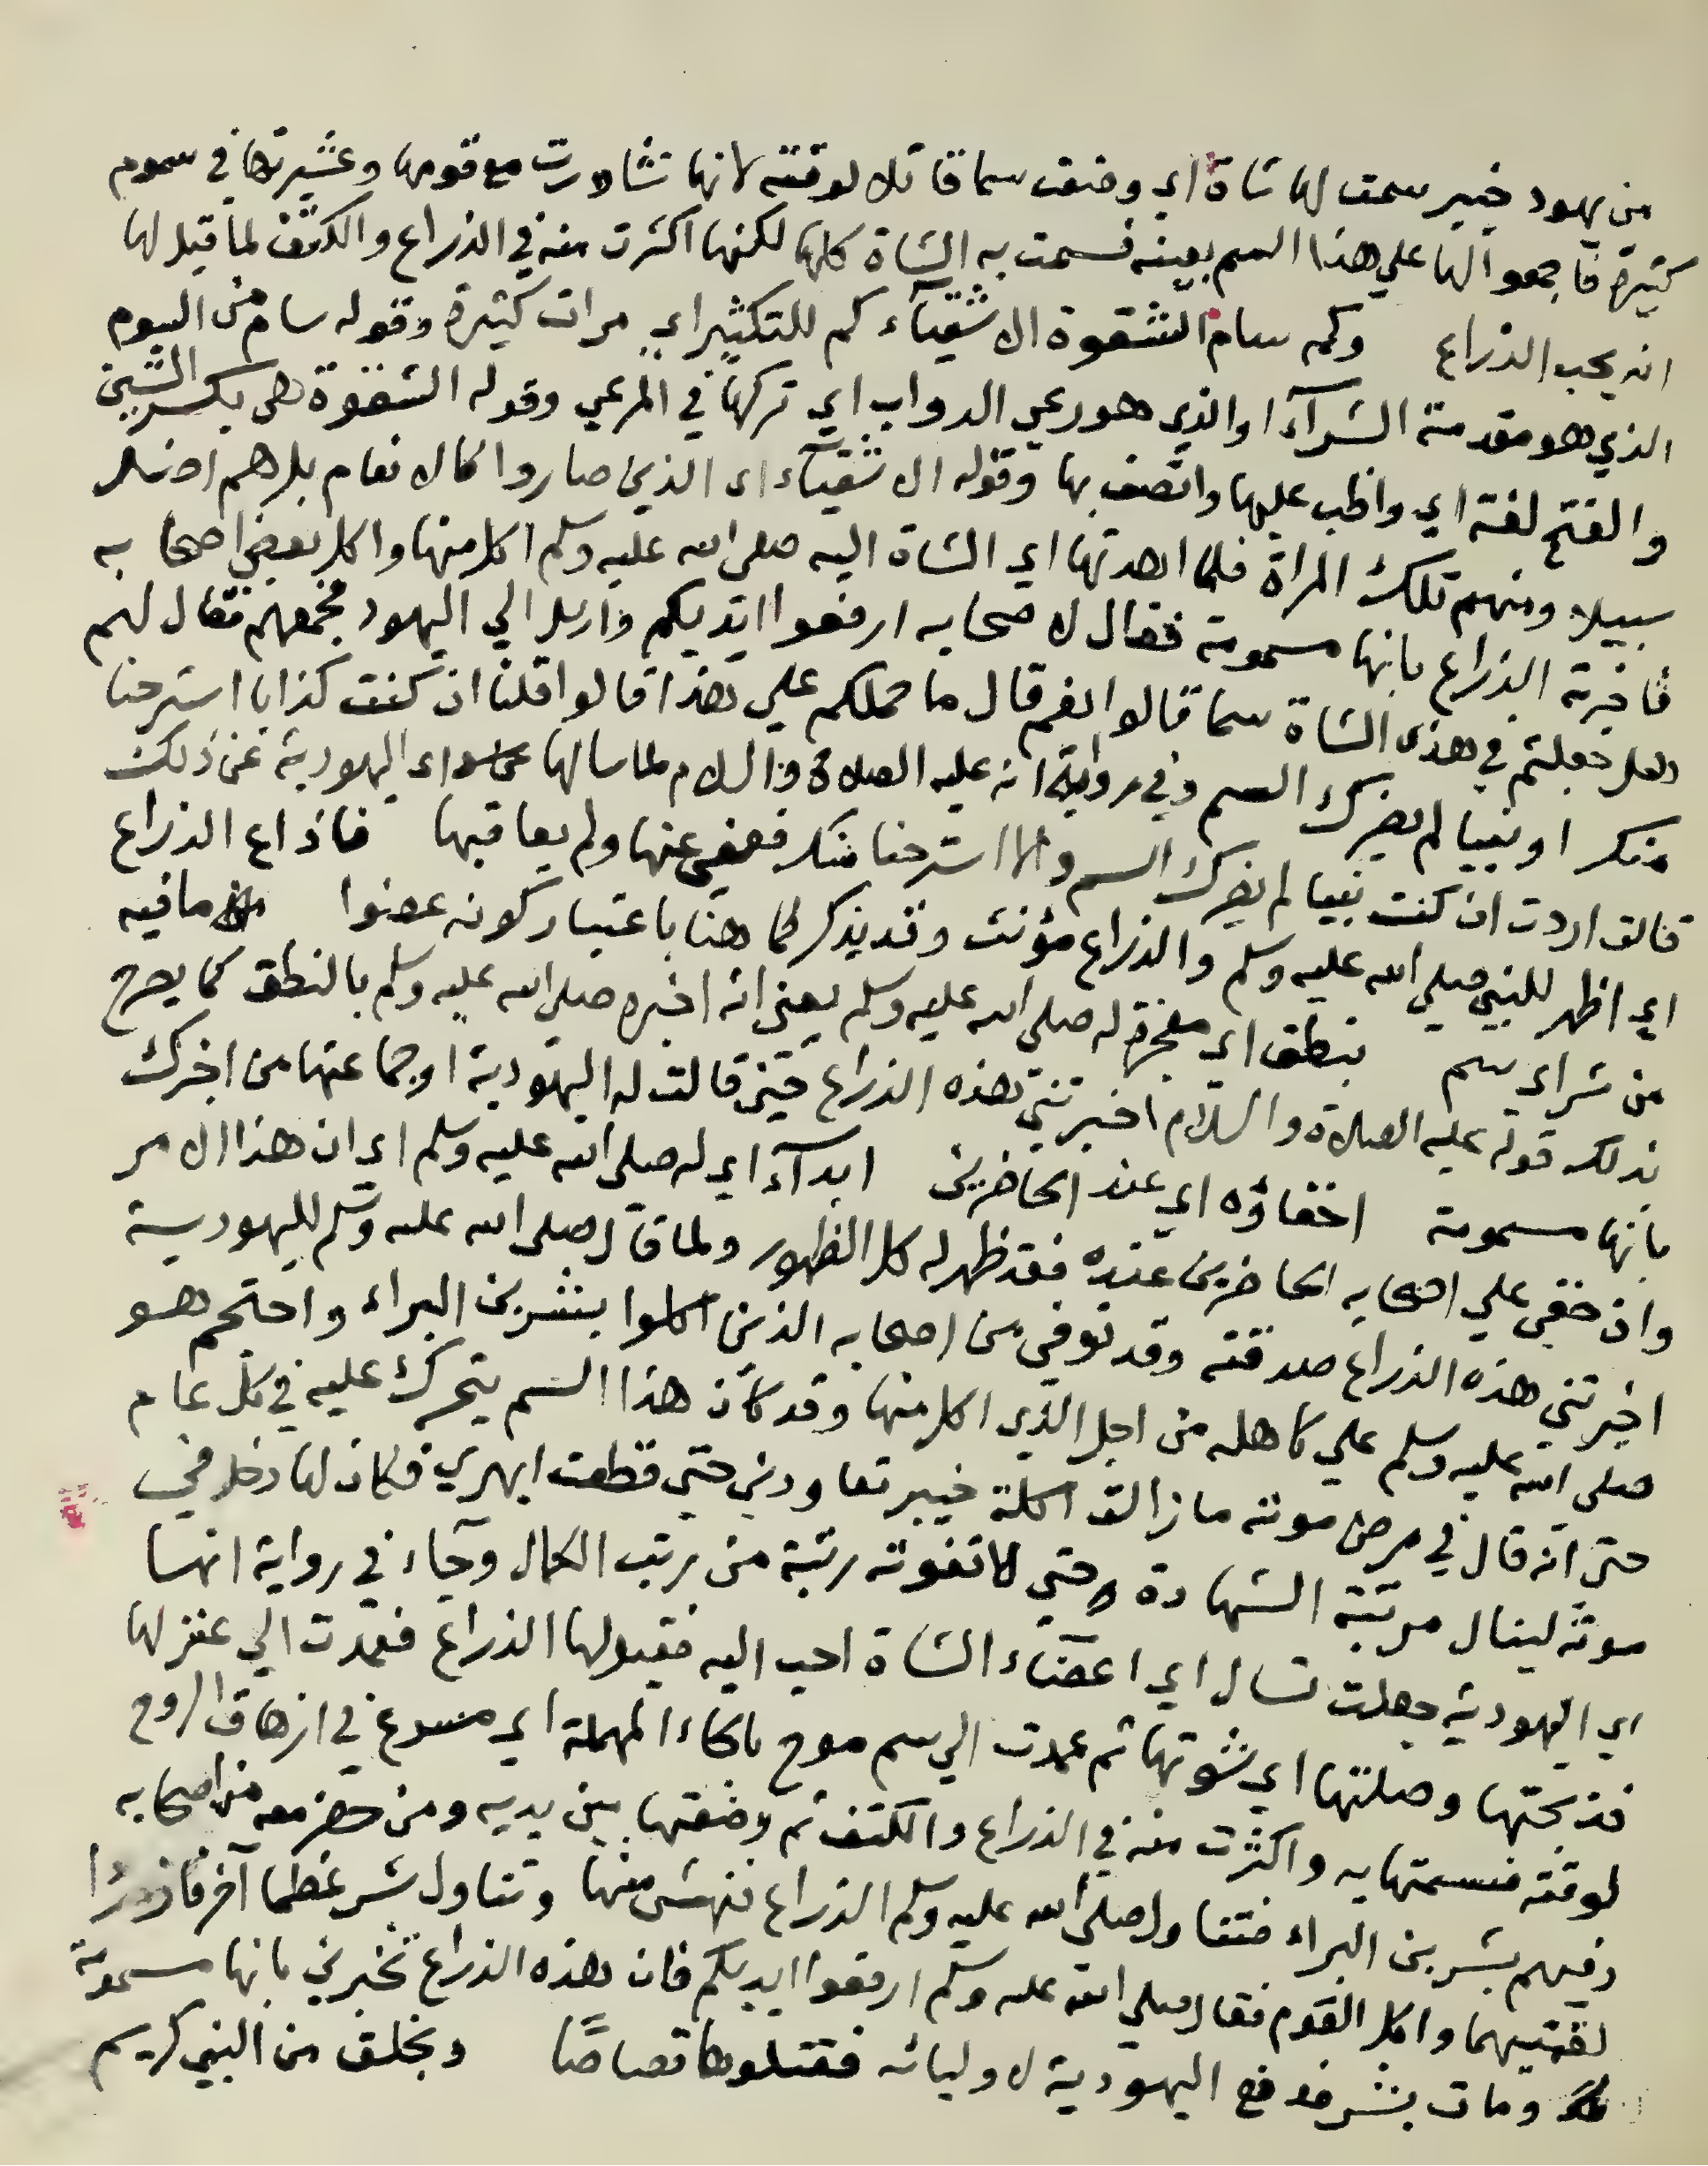 من يهود خيبر سمت لها شاة اي وضعت سما قاتل لوقته لانها تشاورت مع قومها وعشيرتها في سموم
كثيرة فاجمعوا لها علي هذا السم بعينه فسمت به الشاة كلها لكنها اكثرت منه في الذراع والكتف لما قيل لها
انه يحب الذراع وكم سام الشقوة الاشقيآء كم للتكثير اي مرات كثيرة وقوله سام من السوم
الذي هو مقدمة الشرآء او الذي هو رعي الدواب اي تركها في المرعي وقوله الشقوة هي بكسر الشين
والفتح لغة اي واظب عليها واتصف بها وقوله الاشقيآء اي الذين صاروا كالانعام بل هم اضل
سبيلا ومنهم تلك المراة فلما اهدتها اي الشاة اليه صلى الله عليه وسلم اكل منها واكل بعض اصحابه
فاخبرته الذراع بانها مسمومة فقال لاصحابه ارفعوا ايديكم وارسل الي اليهود فجمعهم فقال لهم
هل جعلتم في هذه الشاة سما قالوا نعم قال ما حملكم علي هذا قالوا قلنا ان كنت كذابا استرحنا
منك او نبيا لم يضرك السم وفي رواية انه عليه الصلاة والسلام لما سالها اي اليهودية عن ذلك
قالت اردت ان كنت نبيا لم يضرك السم والا استرحنا منك فعفي عنها ولم يعاقبها فاذاع الذراع
اي اظهر للنبي صلي الله عليه وسلم والذراع مؤنث وقد يذكر كما هنا باعتبار كونه عضوا ما فيه
من شر اي سم بنطق اي معجزة له صلى الله عليه وسلم يعني انه اخبره صلى الله عليه وسلم بالنطق كما يصرح
بذلك قوله عليه الصلاة والسلام اخبرتني هذه الذراع حين قالت له اليهودية او جماعتها من اخبرك
بانها مسمومة اخفاؤه اي عند الحاضرين ابدآء اي له صلى الله عليه وسلم اي ان هذا الامر
وان خفي علي اصحابه الحاضرين عنده فقد ظهر له كل الظهور ولما قال صلى الله عليه وسلم لليهودية
اخبرتني هذه الذراع صدقته وقد توفي من اصحابه الذين اكلوا بشر بن البراء واحتجم هو
صلى الله عليه وسلم علي كاهله من اجل الذي اكل منها وقد كان هذا السم يتحرك عليه في كل عام
حتى انه قال في مرض موته ما زالت اكلة خيبر تعاودني حتي قطعت ابهري فكان لها دخل في
موته لينال مرتبة الشهادة حتي لا تفوته رتبة من رتب الكمال وجآء في رواية انها
اي اليهودية جعلت تسال اي اعضآء الشاة احب اليه فقيل لها الذراع فعمدت الي عنز لها
فذبحتها وصلتها اي شوتها ثم عمدت الي سم موح بالحاء المهملة اي مسرع في ازهاق الروح
لوقته فسمتها به واكثرت منه في الذراع والكتف ثم وضعتها بين يديه ومن حضر معه من اصحابه
وفيهم بشر بن البراء فتناول صلى الله عليه وسلم الذراع فنهش منها وتناول بشر عظما آخر فازدردا
لقمتيهما واكل القوم فقال صلي الله عليه وسلم ارفعوا ايديكم فان هذه الذراع تخبرني بانها مسمومة
ومات بشر فدفع اليهودية لاوليائه فقتلوها قصاصًا وبخلق من النبي كريم